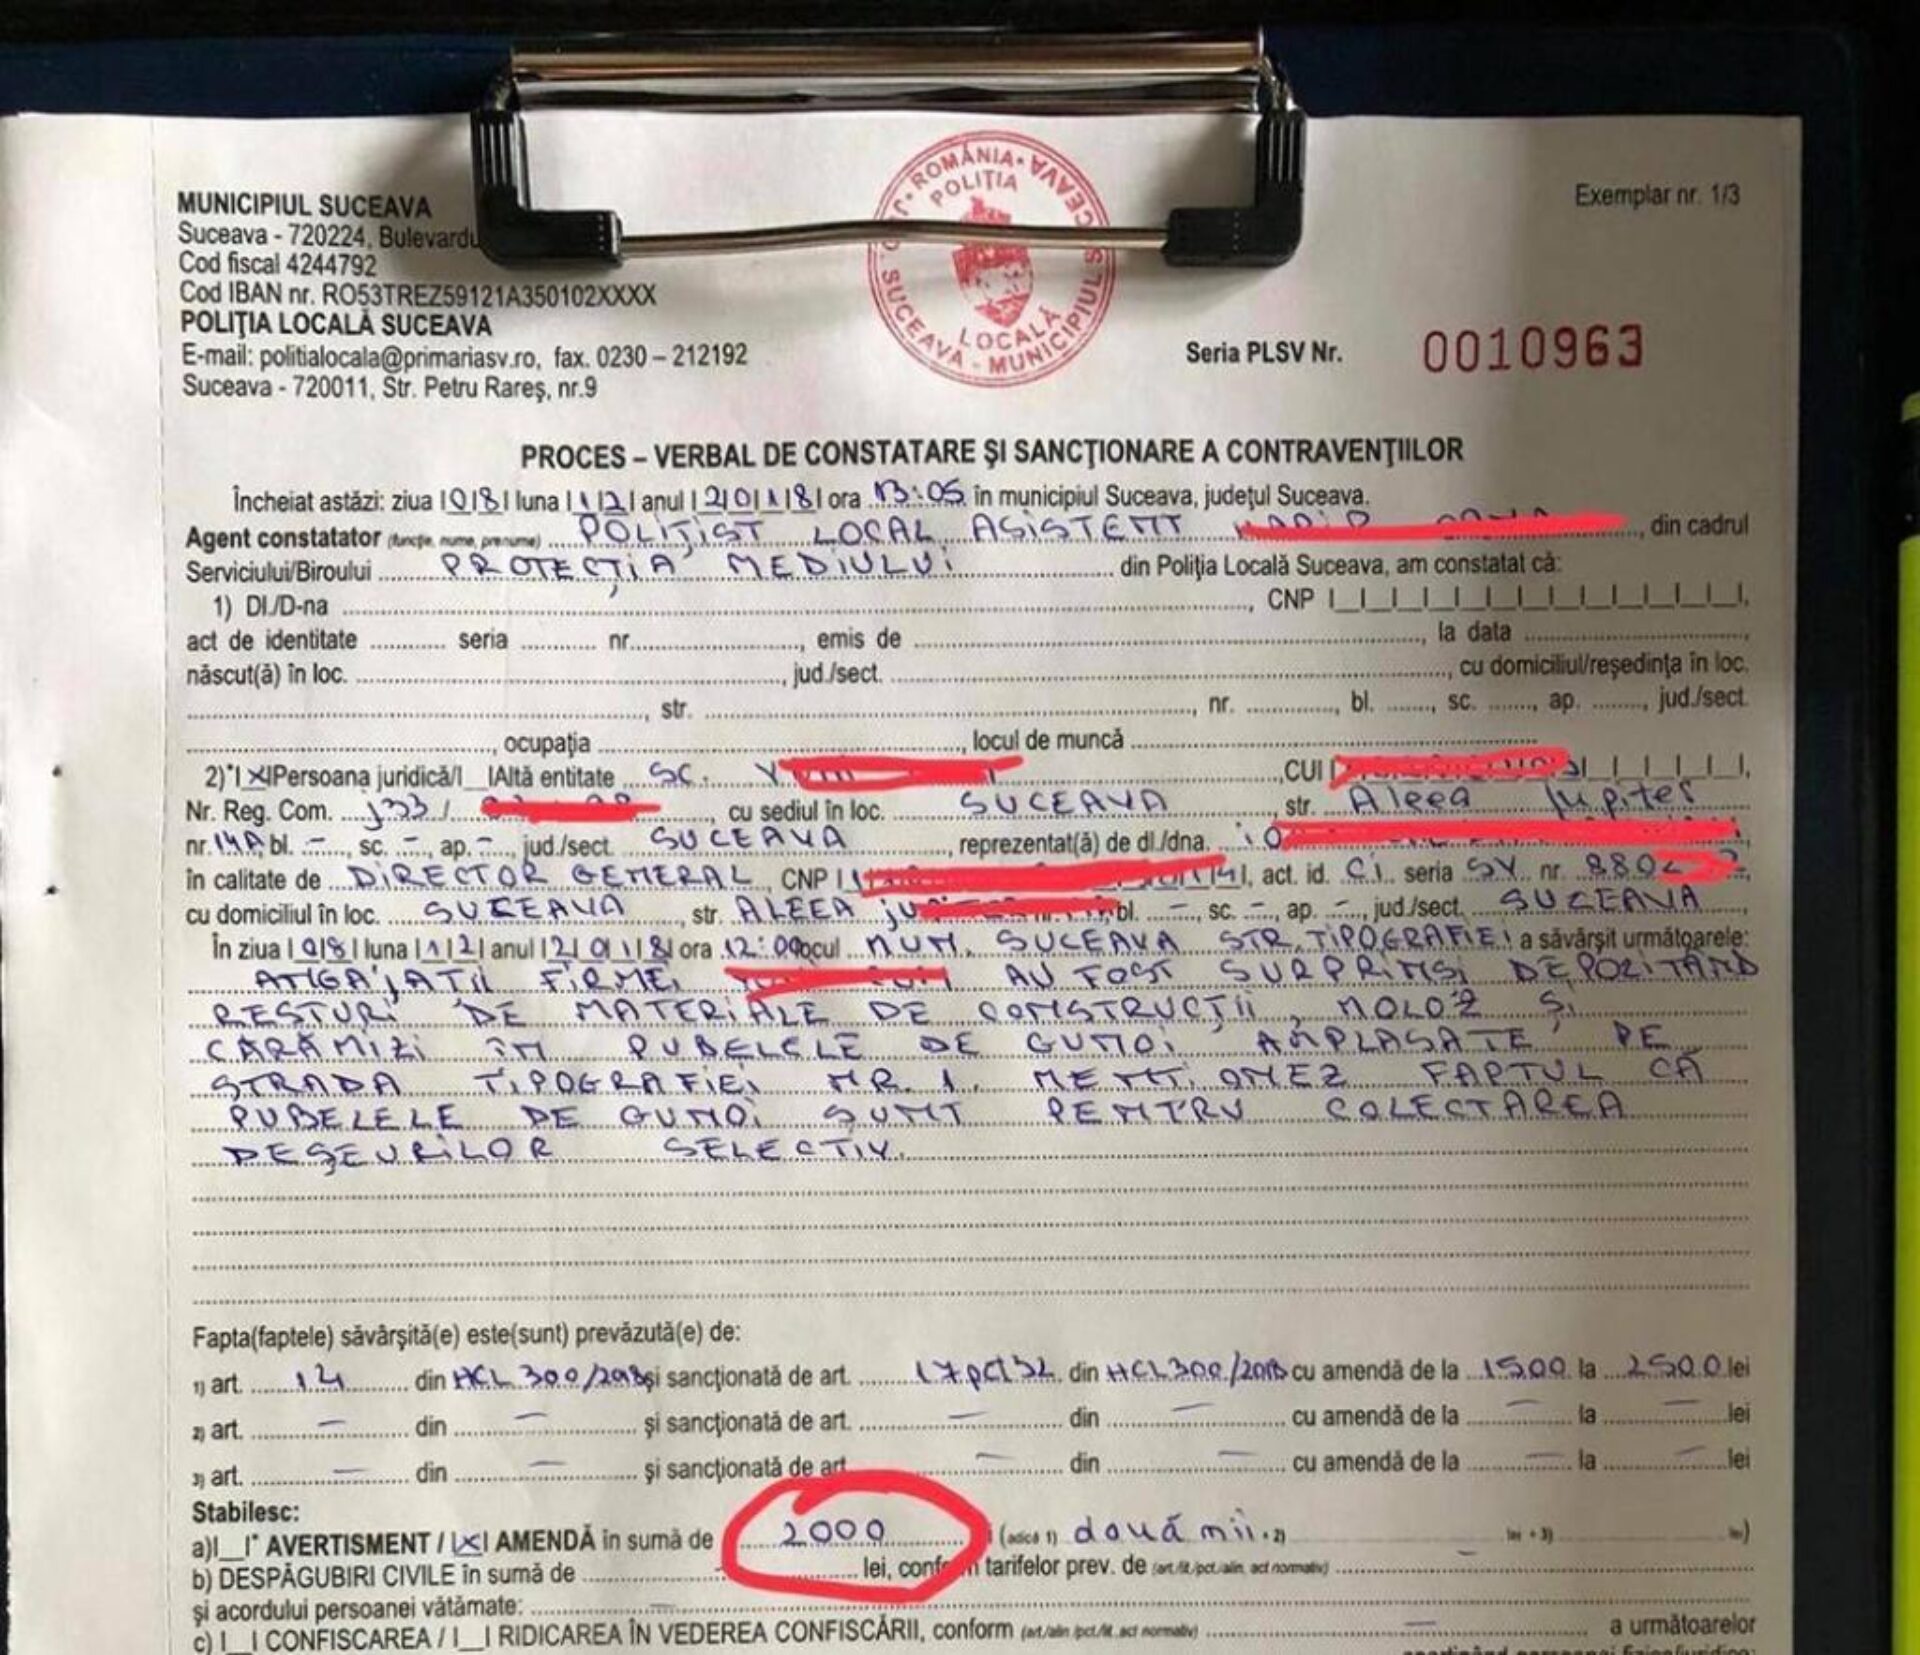 MUNICIPIUL SUCEAVA
Suceava - 720224, Bulevardu
Cod fiscal 4244792
Cod IBAN nr. RO53TREZ59121A350102XXXX
POLIŢIA LOCALĂ SUCEAVA
E-mail: politialocala@primariasv.ro, fax. 0230 – 212192
Suceava - 720011, Str. Petru Rareş, nr.9
ROMÂNIA
POLIŢIA
LOCALĂ
SUCEAVA - MUNICIPIUL SUCEAVA
Exemplar nr. 1/3
Seria PLSV Nr. 0010963
PROCES – VERBAL DE CONSTATARE ŞI SANCŢIONARE A CONTRAVENŢIILOR
Încheiat astăzi: ziua |0|8| luna |1|2| anul |2|0|1|8| ora 13:05 în municipiul Suceava, judeţul Suceava.
Agent constatator (funcţie, nume, prenume) POLIŢIST LOCAL ASISTENT , din cadrul
Serviciului/Biroului PROTECŢIA MEDIULUI din Poliţia Locală Suceava, am constatat că:
1) Dl./D-na , CNP
act de identitate seria nr. , emis de , la data
născut(ă) în loc. , jud./sect. , cu domiciliul/reşedinţa în loc.
, str. , nr. , bl. , sc. , ap. , jud./sect.
, ocupaţia , locul de muncă
2)*|X|Persoana juridică/|_|Altă entitate SC. ,CUI
Nr. Reg. Com. J33/ , cu sediul în loc. SUCEAVA str. Aleea Jupiter
nr. 14A, bl. -, sc. -, ap. -, jud./sect. SUCEAVA , reprezentat(ă) de dl./dna.
în calitate de DIRECTOR GENERAL, CNP , act. id. CI seria SV nr. 880
cu domiciliul în loc. SUCEAVA , str. ALEEA bl. -, sc. -, ap. -, jud./sect. SUCEAVA
În ziua |0|8| luna |1|2| anul |2|0|1|8| ora 12:00 locul MUN. SUCEAVA STR. TIPOGRAFIEI a săvârşit următoarele:
ANGAJAŢII FIRMEI AU FOST SURPRINSI DEPOZITÂND
RESTURI DE MATERIALE DE CONSTRUCŢII, MOLOZ ŞI
CĂRĂMIZI ÎN PUBELELE DE GUNOI AMPLASATE PE
STRADA TIPOGRAFIEI NR. 1. MENŢIONEZ FAPTUL CĂ
PUBELELE DE GUNOI SUNT PENTRU COLECTAREA
DEŞEURILOR SELECTIV.
Fapta(faptele) săvârşită(e) este(sunt) prevăzută(e) de:
1) art. 14 din HCL 300/2018 şi sancţionată de art. 17 pct 52 din HCL 300/2018 cu amendă de la 1500 la 2500 lei
2) art. - din - şi sancţionată de art. - din - cu amendă de la - la - lei
3) art. - din - şi sancţionată de art. - din - cu amendă de la - la - lei
Stabilesc:
a)|_|* AVERTISMENT / |X| AMENDĂ în sumă de 2000 (adică 1) două mii 2) lei + 3) lei)
b) DESPĂGUBIRI CIVILE în sumă de - lei, conform tarifelor prev. de (art./lit./pct./alin. act normativ) -
şi acordului persoanei vătămate: -
c) |_| CONFISCAREA / |_| RIDICAREA ÎN VEDEREA CONFISCĂRII, conform (art./alin./pct./lit. act normativ) - a următoarelor